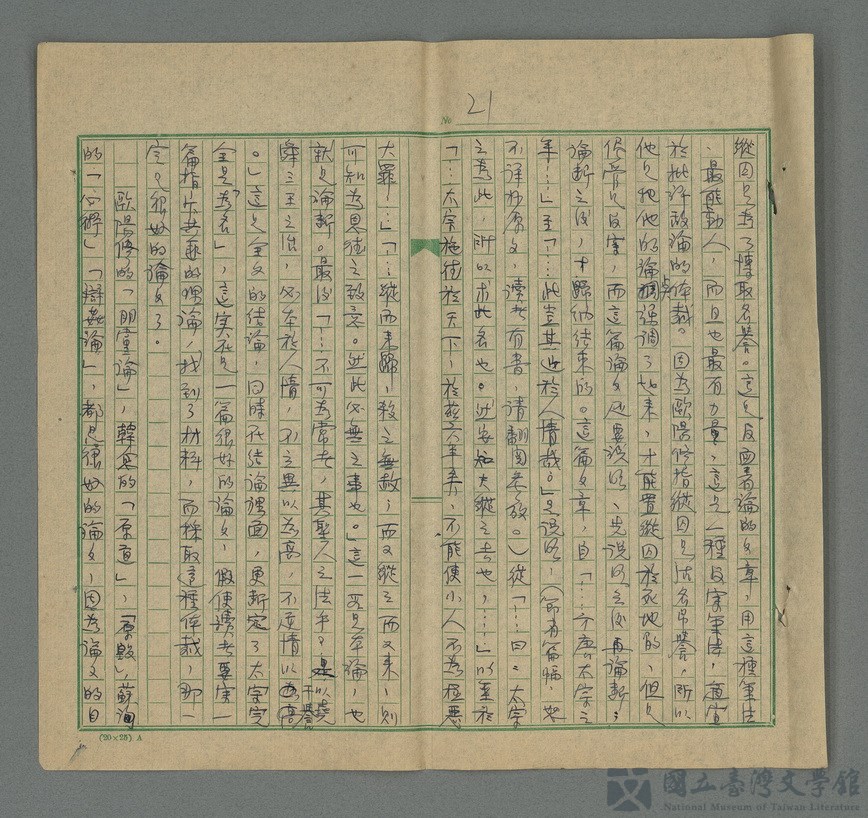 No 21
縱囚是為了博取名譽。這是反面着論的文章,用這種筆法
,最能動人,而且也最有力量,這是一種反寫筆法,適宜
於批評敵論的体裁。因為歐陽修指縱囚是沽名吊譽,所以
他只把他的論點强調了起来,才能置縱囚於死地的,但是
儘管是反寫,而這篇論文还要說明、先說明之後再論斷;
論斷之後,才歸納結束的。這篇文章,自「…方唐太宗之
年…」至「…此豈其近於人情哉。」是說明,(節省篇幅,恕
不詳抄原文,讀者有書,請翻閱參攷。)從「…曰:太宗
之為此,所以求此名也。然安知夫縱之去也,…」以至於
「…太宗施德於天下,於茲六年矣,不能使小人不為極惡
大罪…」「…縱而来歸,殺之無赦;而又縱之而又来,則
可知為恩德之致矣。然此必無之事也。」這一段是本論,也
就是論斷。最後「…不可為常者,其聖人之法乎。是以堯
舜三王之治,必本於人情,不立異以為高,不逆情以干譽
。」這是全文的結論,同時在結論裡面,更斷定了太宗完
全是為名」,這実在是一篇很好的論文,假使讀者要寫一
篇指斥共匪的理論,找到了材料,而採取這種体裁,那一
定是很好的論文了。
歐陽修的「朋黨論」,韓愈的「原道」,「原毀」,蘇洵
的「心術」「辯姦論」,都是很好的論文,因為論文的目
(20×25) A
國立臺灣文學館
National Museum of Taiwan Literature